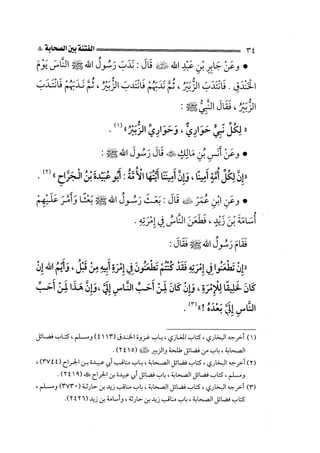 ٣٤ الفتنة بين الصحابة
• وعَنْ جَابِرِ بْنِ عَبْدِ الله ﷺ قَالَ : نَدَبَ رَسُولُ الله ﷺ النَّاسَ يَوْمَ
الْخَنْدَقِ . فَانْتَدَبَ الزُّبَيْرُ ، ثُمَّ نَدَبَهُمْ فَانْتَدَبَ الزُّبَيْرُ ، ثُمَّ نَدَبَهُمْ فَانْتَدَبَ
الزُّبَيْرُ ، فَقَالَ النَّبِيُّ ﷺ :
« لِكُلِّ نَبِيٍّ حَوَارِيٌّ ، وَحَوَارِيَّ الزُّبَيْرُ » (١) .
• وعَنْ أَنَسِ بْنِ مَالِكٍ ﷺ قَالَ رَسُولَ الله ﷺ :
« إِنَّ لِكُلِّ أُمَّةٍ أَمِينًا ، وَإِنَّ أَمِينَنَا أَيَّتُهَا الأُمَّةُ : أَبُو عُبَيْدَةَ بْنُ الْجَرَّاحِ » (٢) .
• وعَنِ ابْنِ عُمَرَ ﷺ قَالَ : بَعَثَ رَسُولُ الله ﷺ بَعْثًا وَأَمَّرَ عَلَيْهِمْ
أُسَامَةَ بْنَ زَيْدٍ ، فَطَعَنَ النَّاسُ فِي إِمْرَتِهِ .
فَقَامَ رَسُولُ الله ﷺ فَقَالَ :
« إِنْ تَطْعَنُوا فِي إِمْرَتِهِ فَقَدْ كُنْتُمْ تَطْعَنُونَ فِي إِمْرَةِ أَبِيهِ مِنْ قَبْلُ ، وَأَيْمُ الله إِنْ
كَانَ خَلِيقًا لِلْإِمْرَةِ ، وَإِنْ كَانَ لَمِنْ أَحَبِّ النَّاسِ إِلَيَّ ، وَإِنَّ هَذَا لَمِنْ أَحَبِّ
النَّاسِ إِلَيَّ بَعْدَهُ ! » (٣) .
(١) أخرجه البخاري ، كتاب المغازي ، باب غزوة الخندق (٤١١٣) ومسلم ، كتاب فضائل
الصحابة ، باب من فضائل طلحة والزبير ﷺ (٢٤١٥) .
(٢) أخرجه البخاري ، كتاب فضائل الصحابة ، باب مناقب أبي عبيدة بن الجراح (٣٧٤٤) ،
ومسلم ، كتاب فضائل الصحابة ، باب فضائل أبي عبيدة بن الجراح ﷺ (٢٤١٩) .
(٣) أخرجه البخاري ، كتاب فضائل الصحابة ، باب مناقب زيد بن حارثة (٣٧٣٠) ومسلم ،
كتاب فضائل الصحابة ، باب مناقب زيد بن حارثة ، وأسامة بن زيد (٢٤٢٦) .